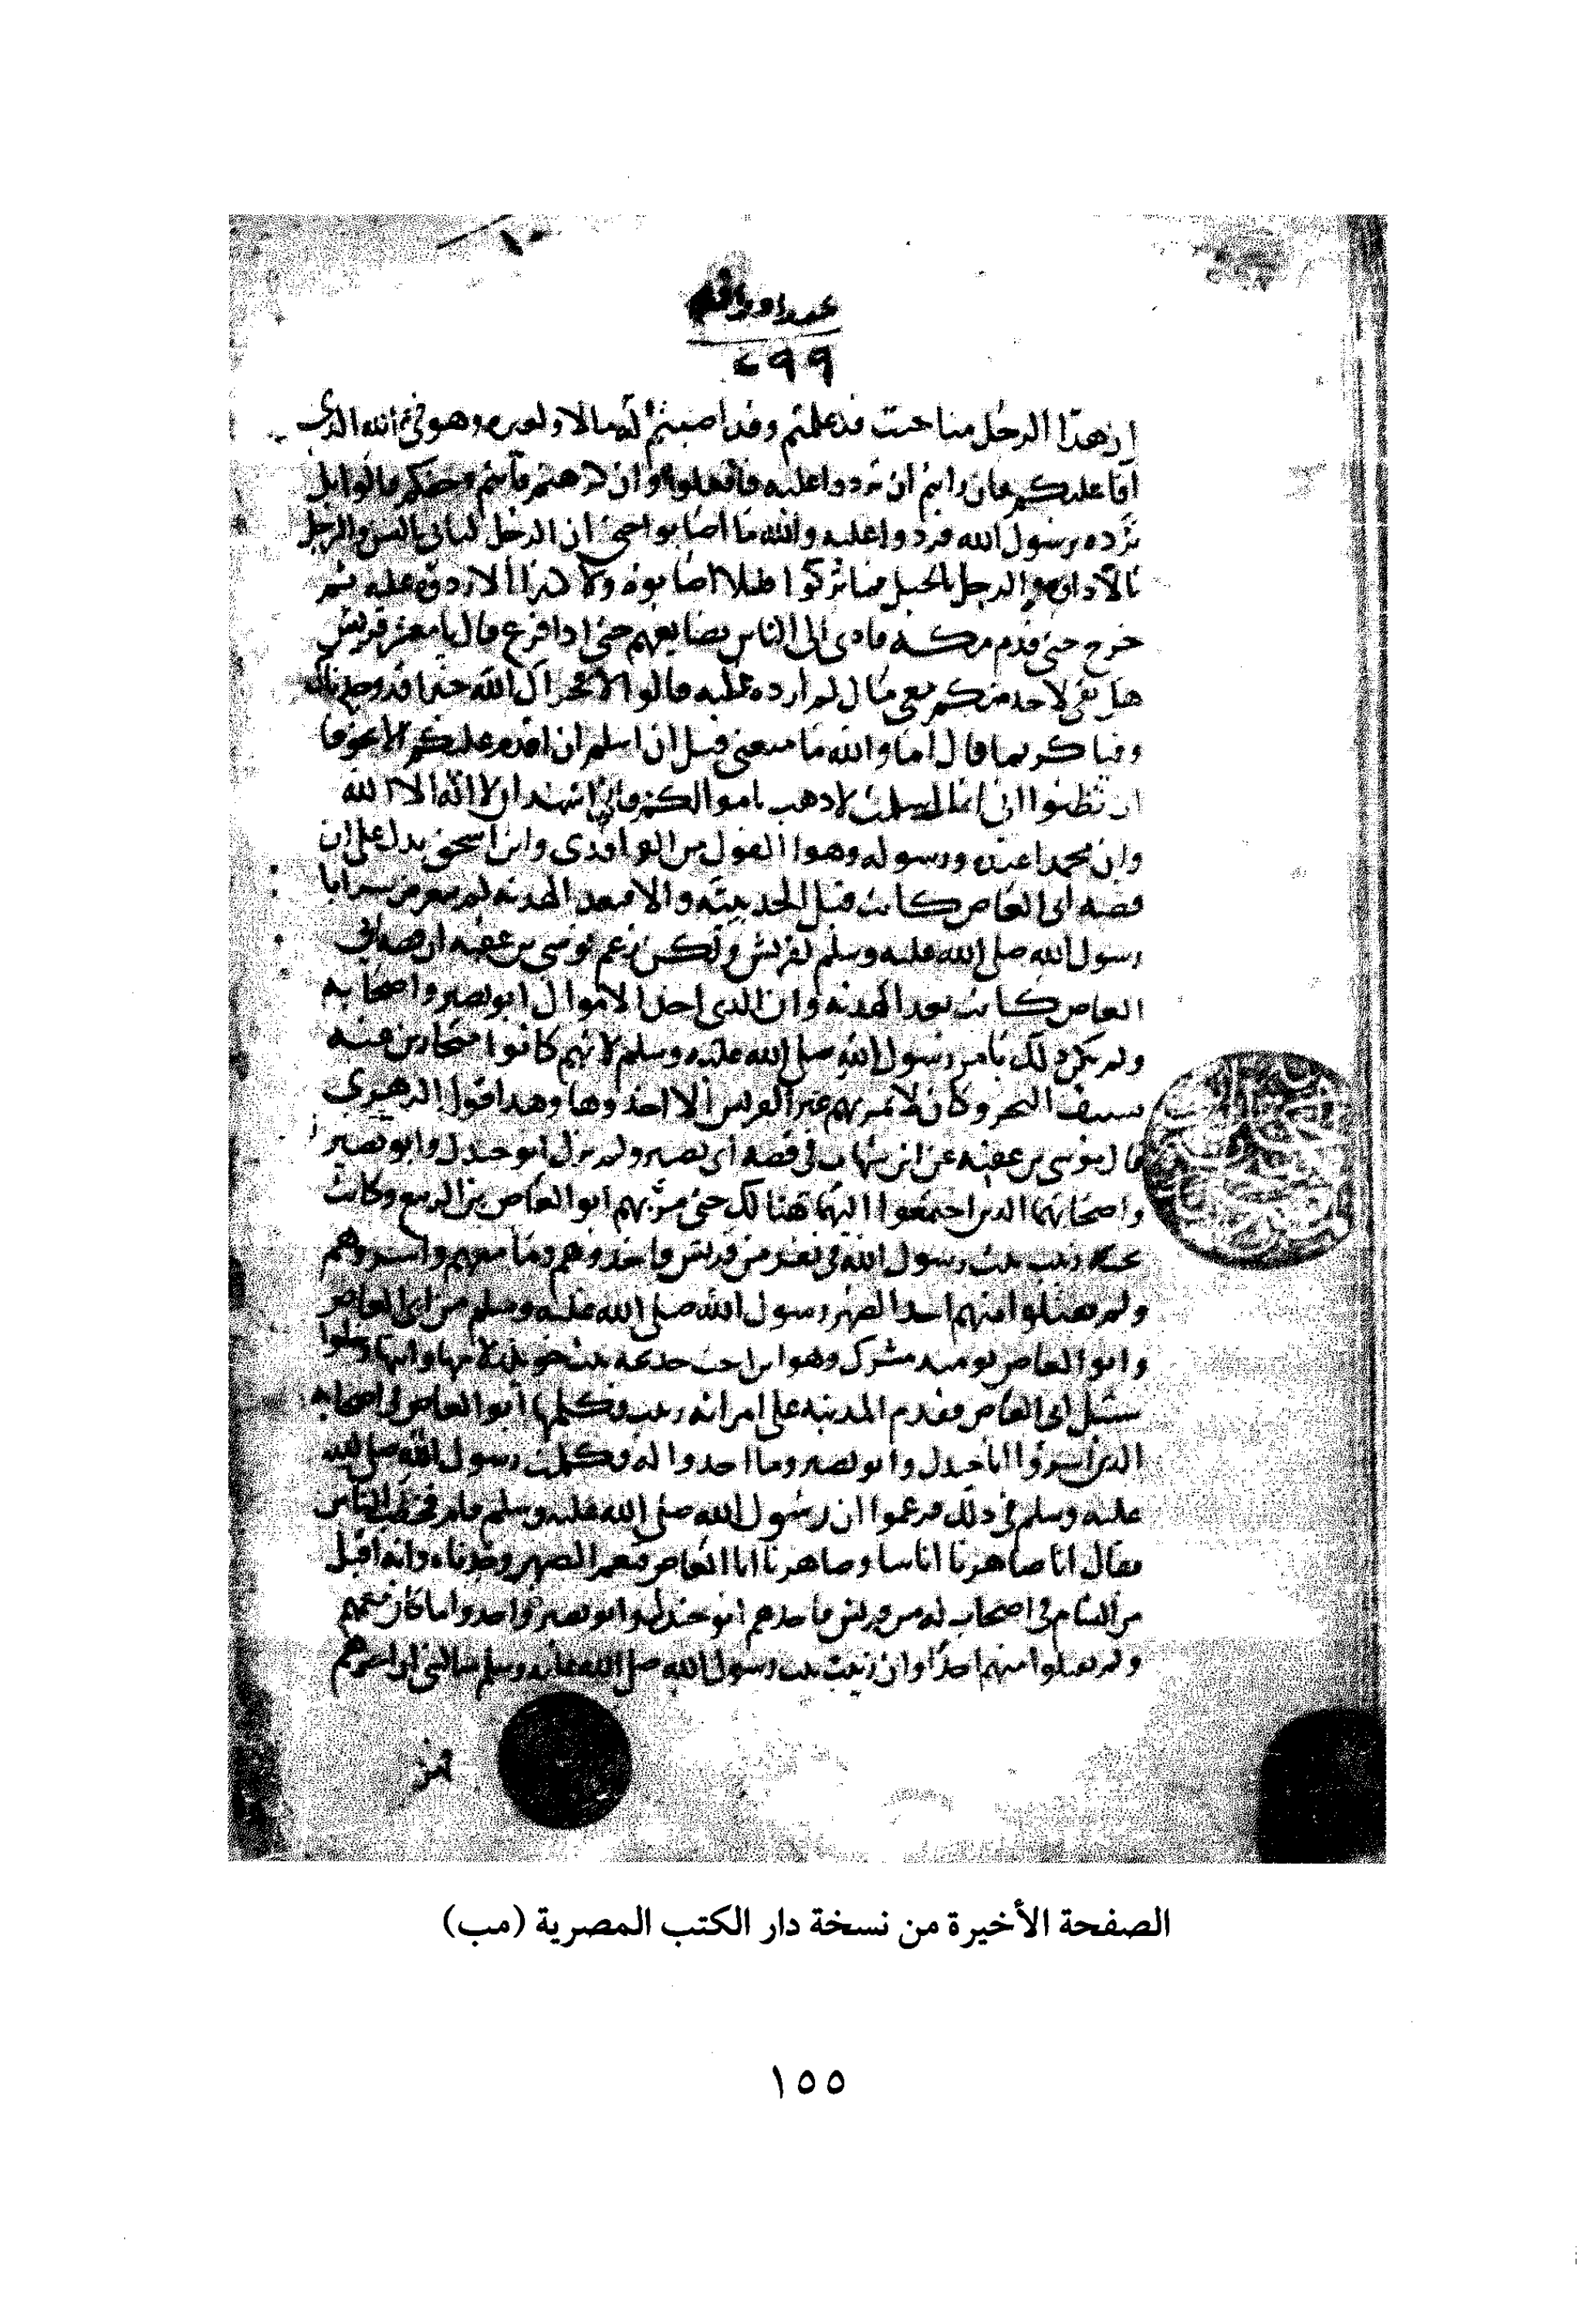 عدد اوراقه
٢٩٩
ان هذا الرجل منا حيث قد علمتم وقد اصبتم له مالا ولغيره وهو في الله الذي
افا عليكم فان رايتم ان تردوا عليه فافعلوا وان كرهتم فانتم وحقكم قالوا بل
نرده يرسول الله فردوا عليه والله ما اصابوا حتى ان الرجل لياتي بالشن والرجل
بالاداوه والرجل بالحبل فما تركوا قليلا اصابوه ولا كثيرا الا ردوه عليه ثم
خرج حتى قدم مكه فادى الى الناس بضايعهم حتى اذا فرغ قال يا معشر قريش
هل بقي لاحد منكم معي مال لم ارده عليه قالوا لا فجزاك الله خيرا قد وجدناك
وفيا كريما قال اما والله ما منعني قبل ان اسلم ان اقدم عليكم الا تخوفا
ان تظنوا اني انما اسلمت لاذهب باموالكم فاني اشهد ان لا اله الا الله
وان محمدا عبده ورسوله وهوا القول من الواقدي وابن اسحق يدل على ان
قصه ابي العاص كانت قبل الحديبيه والا فبعد الهدنه لم تعرض سرايا
رسول الله صلى الله عليه وسلم لقريش ولكن زعم موسى بن عقبه ان قصه ابي
العاص كانت بعد الهدنه وان الذي اخذ الاموال ابو بصير واصحابه
ولم يكن ذلك بامر رسول الله صلى الله عليه وسلم لانهم كانوا منحازين عنه
بسيف البحر وكان لا تمر بهم عير لقريش الا اخذوها وهذا قول الزهري
قال موسى بن عقبه عن ابن شهاب في قصه ابي بصير ولم يزل ابو جندل وابو بصير
واصحابهما الذين اجتمعوا اليهما هنالك حتى مر بهم ابو العاص بن الربيع وكانت
تحته زينب بنت رسول الله في نفر من قريش فاخذوهم وما معهم واسروهم
ولم يقتلوا منهم احدا لصهر رسول الله صلى الله عليه وسلم من ابي العاص
وابو العاص يوميذ مشرك وهو ابن اخت خديجه بنت خويلد لامها وابيها وخلوا
سبيل ابي العاص فقدم المدينه على امراته زينب فكلمها ابو العاص في اصحابه
الذين اسروا ابا جندل وابو بصير وما اخذوا له فكلمت رسول الله صلى الله
عليه وسلم في ذلك فزعموا ان رسول الله صلى الله عليه وسلم قام فخطب الناس
فقال انا صاهرنا اناسا وصاهرنا ابا العاص فنعم الصهر وجدناه وانه اقبل
من الشام في اصحاب له من قريش فاخذهم ابو جندل وابو بصير واخذوا ما كان معهم
ولم يقتلوا منهم احدا وان زينب بنت رسول الله صلى الله عليه وسلم سالتني ان اجيرهم
الصفحة الأخيرة من نسخة دار الكتب المصرية (مب)
١٥٥